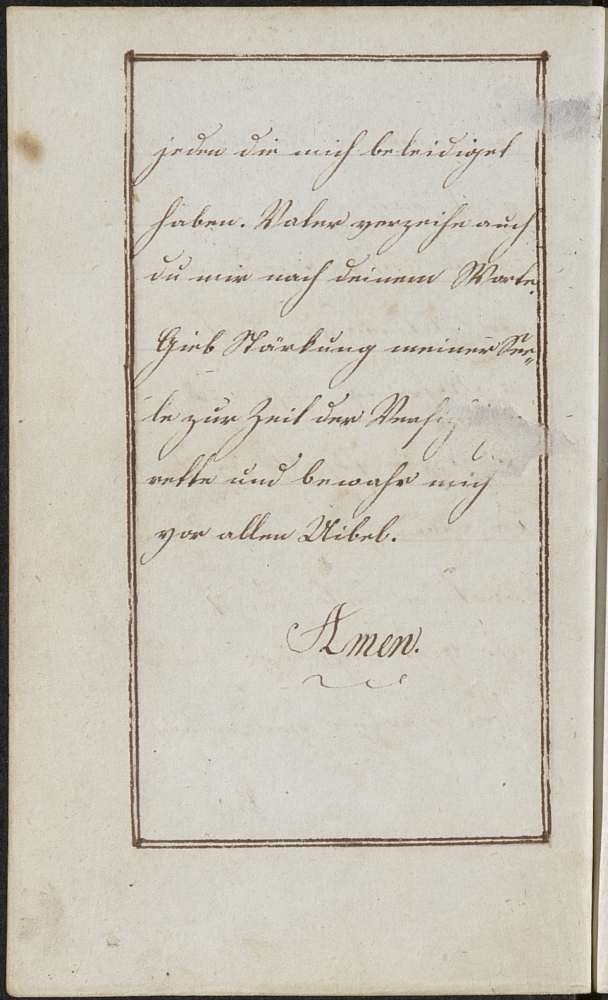 jeden die mich beleidiget
haben. Vater verzeihe auch
du mir nach deinem Worte.
Gieb Stärkung meiner See„
le zur Zeit der
rette und bewahr mich
vor allen Uibel.
Amen.